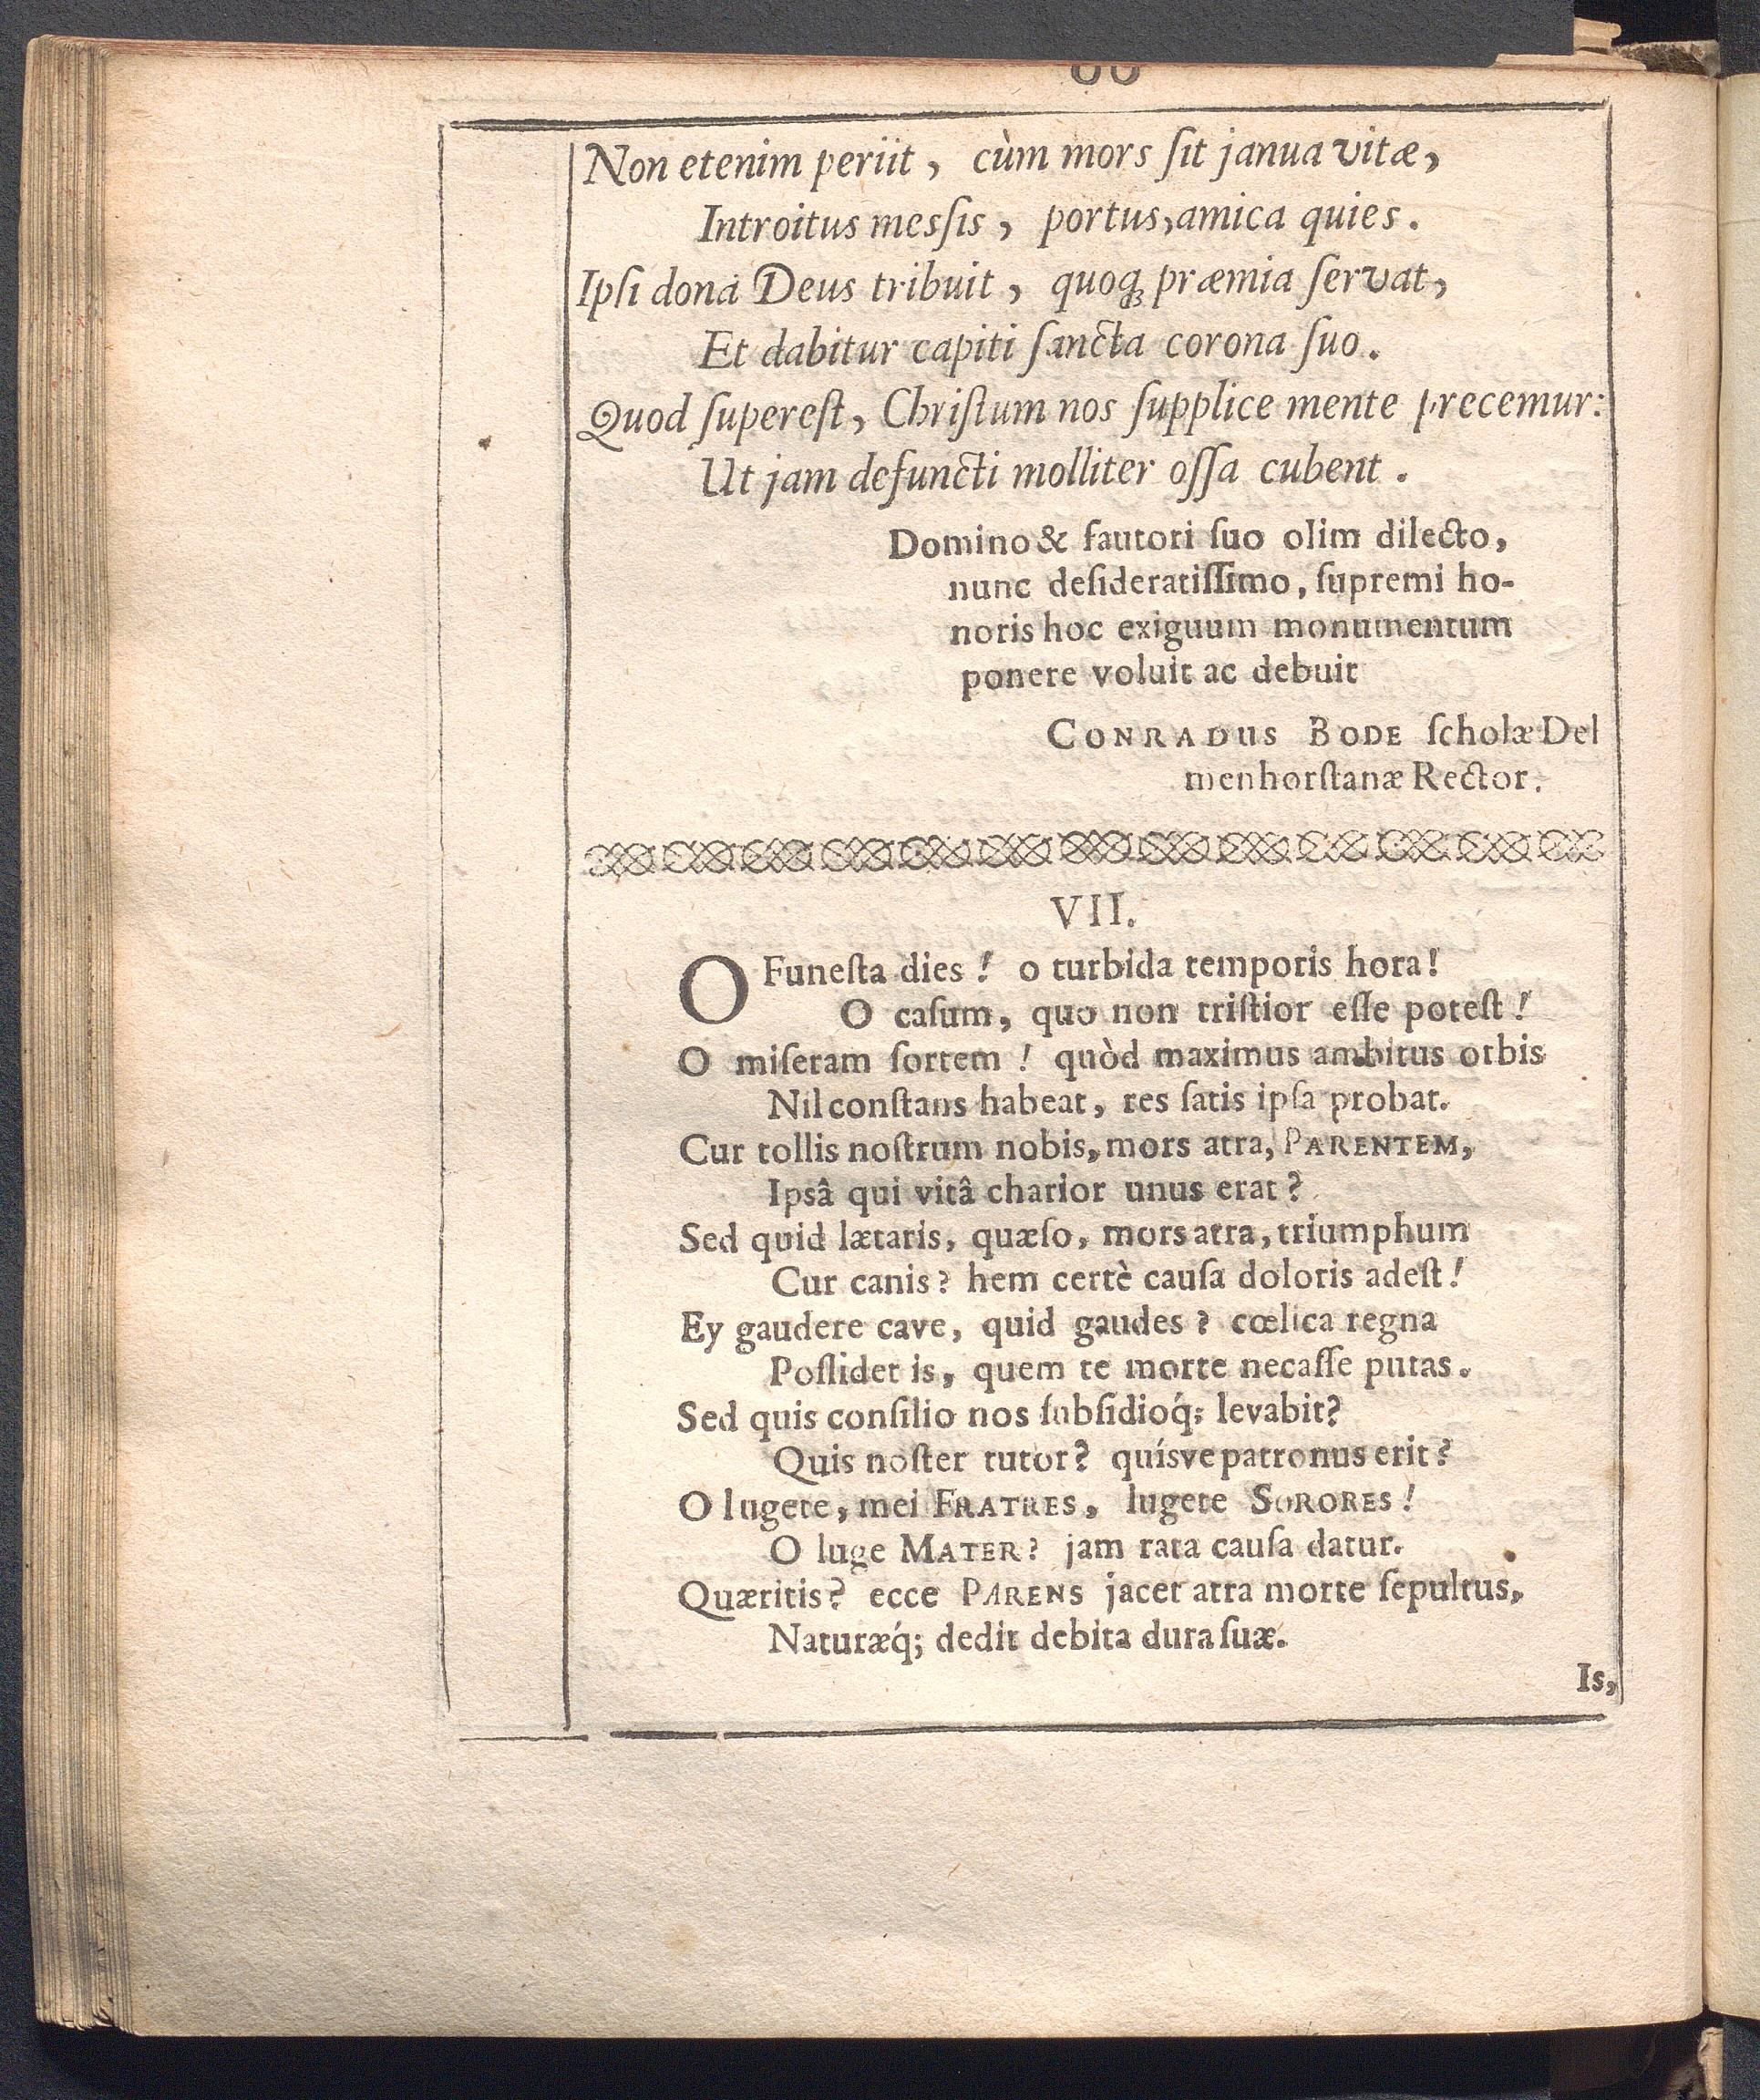 Non etenim periit, cùm mors ſit janua vitæ,
Introitus mesſis, portus, amica quies.
Ipſi dona Deus tribuit, quoq; præmia ſervat,
Et dabitur capiti ſancta corona ſuo.
Quod ſupereſt, Chriſtum nos ſupplice mente precemur:
Ut jam defuncti molliter oſſa cubent.
Domino & fautori ſuo olim dilecto,
nunc deſideratiſſimo, ſupremi ho-
noris hoc exiguum monumentum
ponere voluit ac debuit
CONRADUS BODE ſcholæ Del
menhorſtanæ Rector.
VII.
O Funeſta dies! o turbida temporis hora!
O caſum, quo non triſtior eſſe poteſt!
O miſeram ſortem! quòd maximus ambitus orbis
Nil conſtans habeat, res ſatis ipſa probat.
Cur tollis noſtrum nobis, mors atra, PARENTEM,
Ipsâ qui vitâ charior unus erat?
Sed quid lætaris, quæſo, mors atra, triumphum
Cur canis? hem certè cauſa doloris adeſt!
Ey gaudere cave, quid gaudes? cœlica regna
Poſſidet is, quem te morte necaſſe putas.
Sed quis conſilio nos ſubſidioq́; levabit?
Quis noſter tutor? quísve patronus erit?
O lugete, mei FRATRES, lugete SORORES!
O luge MATER? jam rata cauſa datur.
Quæritis? ecce PARENS jacet atra morte ſepultus,
Naturæq́; dedit debita dura ſuæ.
Is,